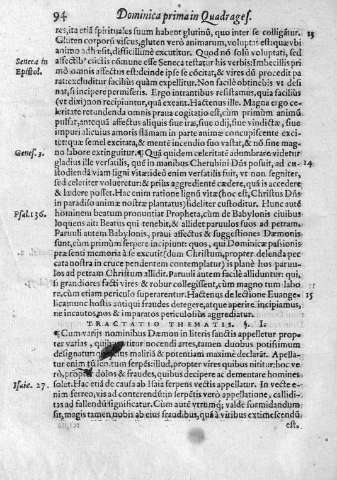 94 Dominica prima in Quadrages.
res, ita etiã spirituales suum habent glutinũ, quo inter se colligãtur. 13
Gluten corporis viscus, gluten verò animarum, voluptas est: quæ vbi
animo adhęsit, difficillimè excutitur. Quod nõ solũ voluptati, sed
affectib' cũctis cõmune esse Seneca testatur his verbis: Imbecillis pri
Seneca in
Epistol.
mò omnis affectus est: deinde ipse se cõcitat, & vires dũ procedit pa
rat: excluditur facilius quàm expellitur. Non facilè obtinebis vt desi
nat, si incipere permiseris. Ergo intrantibus resistamus, quia facilius
(vt dixi) non recipiuntur, quã exeant. Hactenus ille. Magna ergo ce-
leritate retundenda omnis praua cogitatio est, cùm primùm animũ
pulsat, antequã affectus aliquis siue irę, siue odij, siue vindictæ, siue
impuri alicuius amoris flãmam in parte animæ concupiscente exci-
tet: quæ semel excitata, & mente incendio suo vastat, & nõ sine mag-
no labore extinguitur. ¶ Quã quidem celeritatẽ adumbrare videtur
Genes. 3.
gladius ille versatilis, quẽ in manibus Cherubini Dñs posuit, ad cu- 14
stodiendã viam ligni vitæ: ideò enim versatilis fuit, vt non segniter,
sed celeriter volueretur: & priùs aggrediẽtẽ cædere, quã is accedere
& lædere posset. Hac enim ratione lignũ vitæ (hoc est, Christus Dñs
in paradiso animæ nostræ plantatus) fideliter custoditur. Hunc autẽ
Psal. 136.
hominem beatum pronuntiat Propheta, cùm de Babylonis ciuibus
loquens ait: Beatus qui tenebit, & allidet paruulos suos ad petram.
Paruuli autem Babylonis, praui affectus & suggestiones Dæmonis
sunt, cùm primùm serpere incipiunt: quos, qui Dominicæ passionis
præsenti memoria à se excutit (dum Christum, propter delenda pec
cata nostra in cruce pendentem contemplatur) is planè hos paruu-
los ad petram Christum allidit. Paruuli autem facilè alliduntur: qui,
si grandiores facti vires & robur collegissent, cùm magno tum labo-
re, cùm etiam periculo superarentur. Hactenus de lectione Euange- 15
licæ: nunc hostis antiqui fraudes detegere, atque aperire incipiamus,
ne incautos, nos & imparatos periculosiùs aggrediatur.
TRACTATIO THEMATIS. §. I.
¶ Cùm varijs nominibus Dæmon in literis sanctis appelletur prop-
ter varias, quibus vtitur nocendi artes, tamen duobus potissimum
designatur, quibus malitiã & potentiam maximè declarãt. Appella-
tur enim tũ leo, tum serpẽs: illud, propter vires quibus nititur: hoc ve
rò, propter dolos & fraudes, quibus decipere ac dementare homines
Isaie. 27.
solet. Hac etiã de causa ab Isaia serpens vectis appellatur. In vecte e-
nim ferreo, vis ad conterendũ: in serpẽtis verò appellatione, callidi-
tas ad fallendũ significatur. Cùm autẽ vtrumq; valde formidandum
sit, magis tamen nobis ab eius fraudibus, quã à viribus extimescendũ
est.